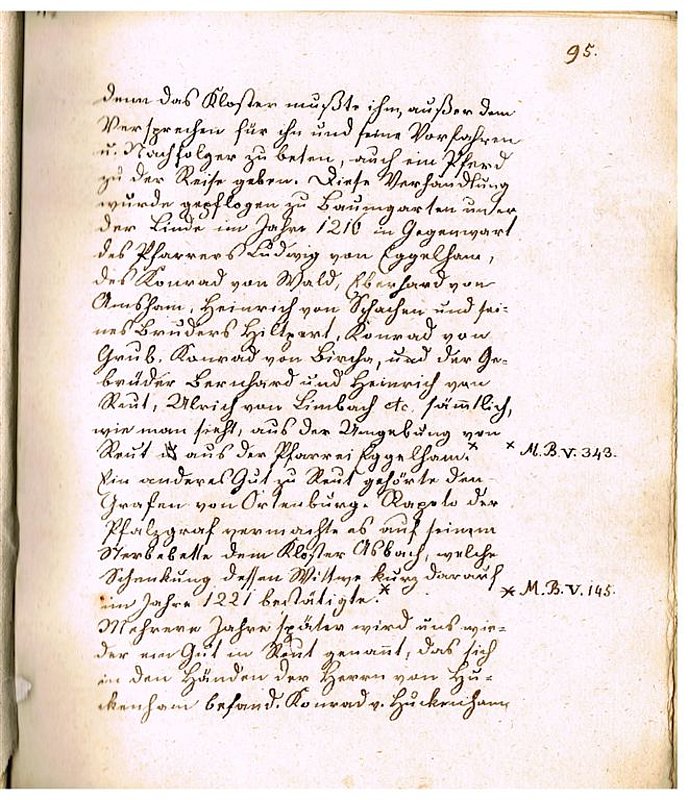 95.
denn das Kloster mußte ihm, außer dem
Versprechen für ihn und seine Vorfahren
u. Nachfolger zu beten, auch ein Pferd
zu der Reise geben. Diese Verhandlung
wurde gepflogen zu Baumgarten unter
der Linde im Jahre 1210 in Gegenwart
des Pfarrers Ludwig von Eggelham,
des Konrad von Wald, Eberhard von
Amsham, Heinrich von Schachen und sei-
nes Bruders Hiltpert, Konrad von
Grub, Konrad von Bircha, und der Ge-
brüder Bernhard und Heinrich von
Reut, Ulrich von Limbach etc. sämmtlich,
wie man sieht, aus der Umgebung von
Reut aus der Pfarrei Eggelham.× × M.B.V. 343.
Ein anderes Gut zu Reut gehörte den
Grafen von Ortenburg. Rapoto der
Pfalzgraf vermachte es auf seinem
Sterbebette dem Kloster Asbach, welche
Schenkung dessen Wittwe kurz darauf
im Jahre 1221 bestätigte.× × M.B.V. 145.
Mehrere Jahre später wird uns wie-
der ein Gut in Reut genannt, das sich
in den Händen der Herrn von Hu-
ckenham befand. Konrad v. Huckenham